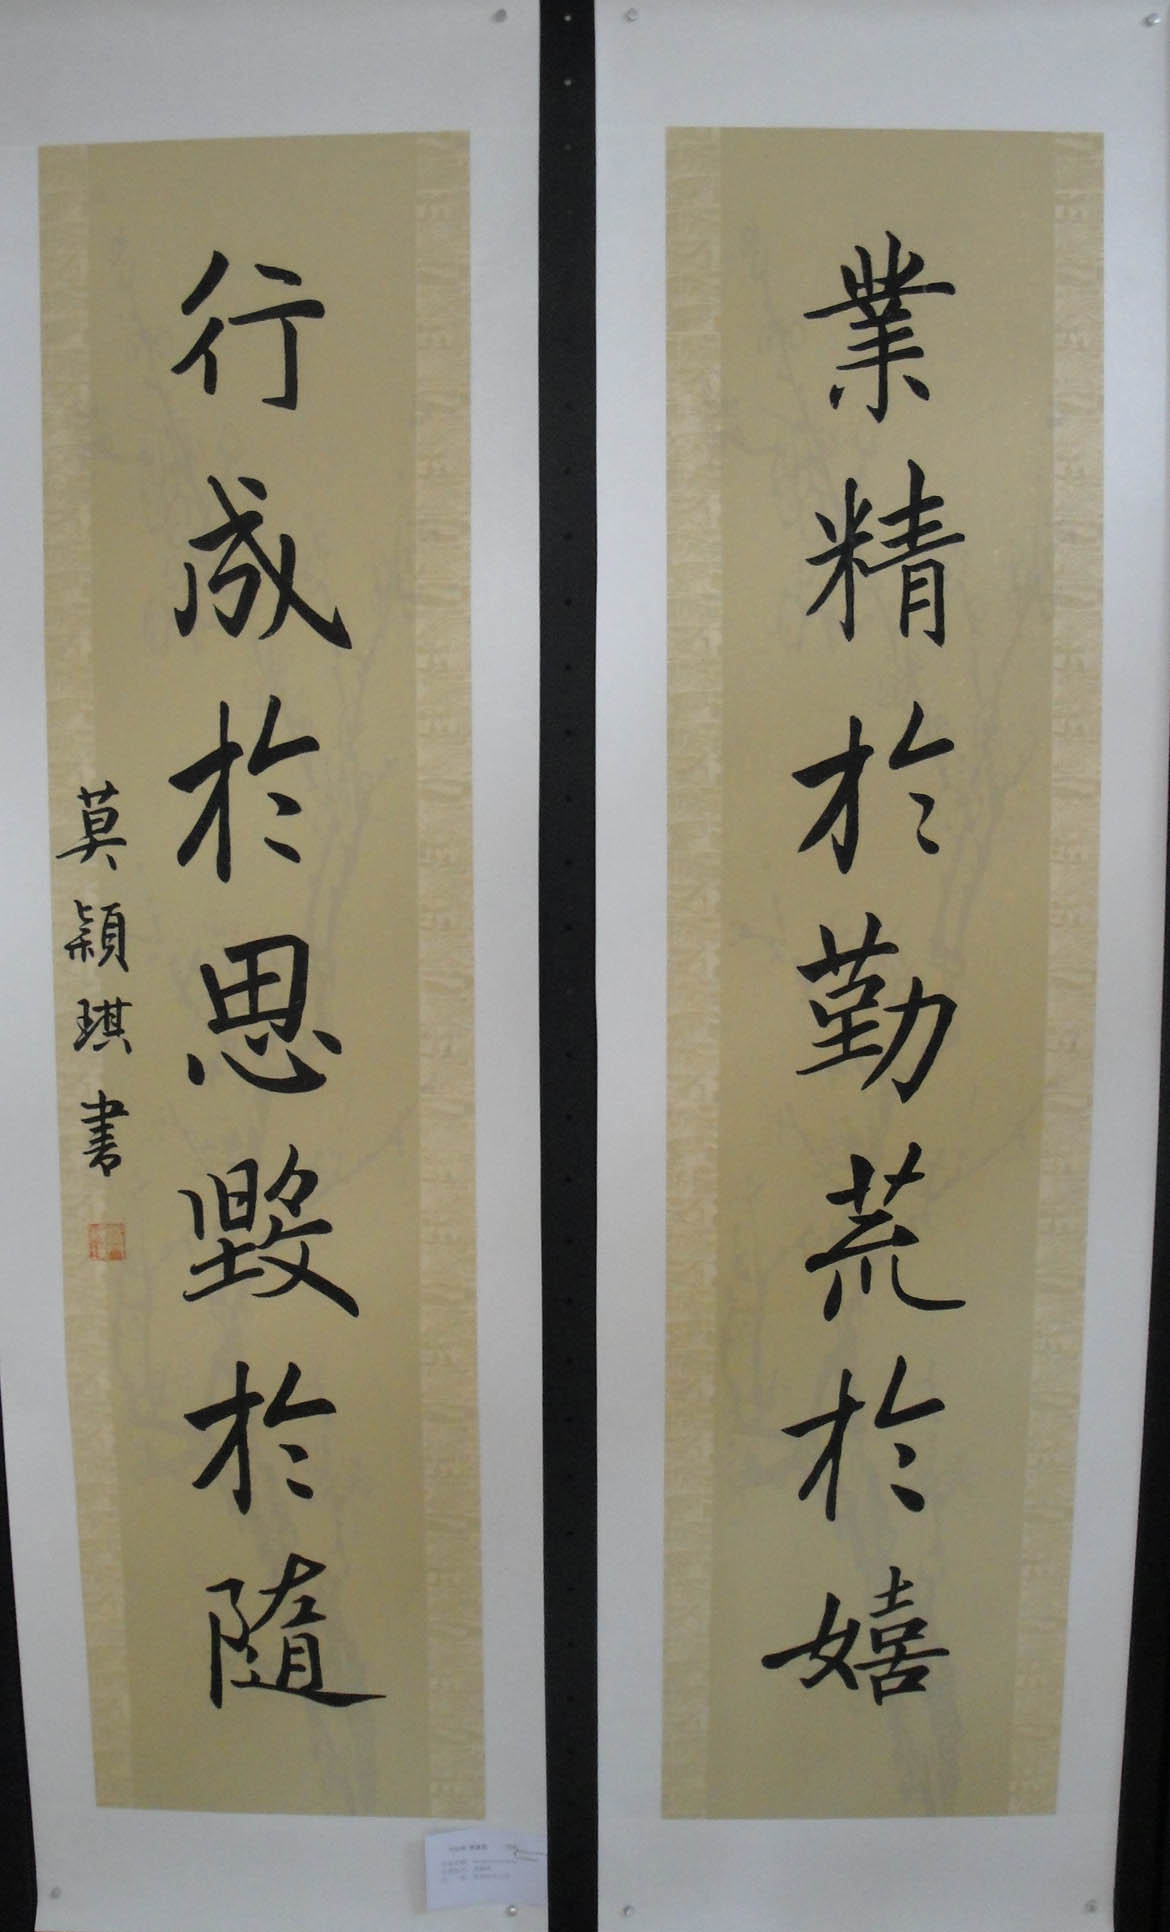 業精於勤荒於嬉
行成於思毀於隨
莫穎琪書